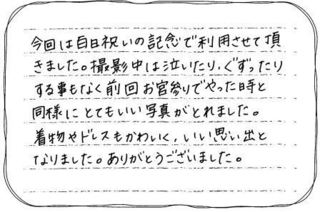 今回は百日祝いの記念で利用させて頂
きました。撮影中は泣いたり、ぐずったり
する事もなく前回お宮参りでやった時と
同様にとてもいい写真がとれました。
着物やドレスもかわいく、いい思い出と
なりました。ありがとうございました。